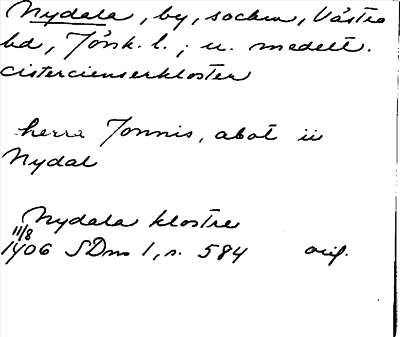 Nydala, by, socken, Västra
hd, Jönk. l.; u. medelt.
cistercienserkloster
herra Jonnis, abot ii
Nydal
Nydala klostre
11/8
1406 SDns 1, s. 584 orig.